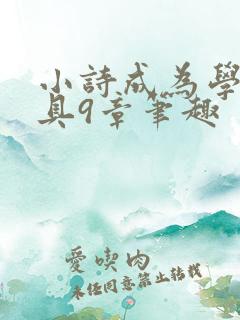 小詩成為學
具9章筆趣
愛喫肉
未經同意禁止轉載